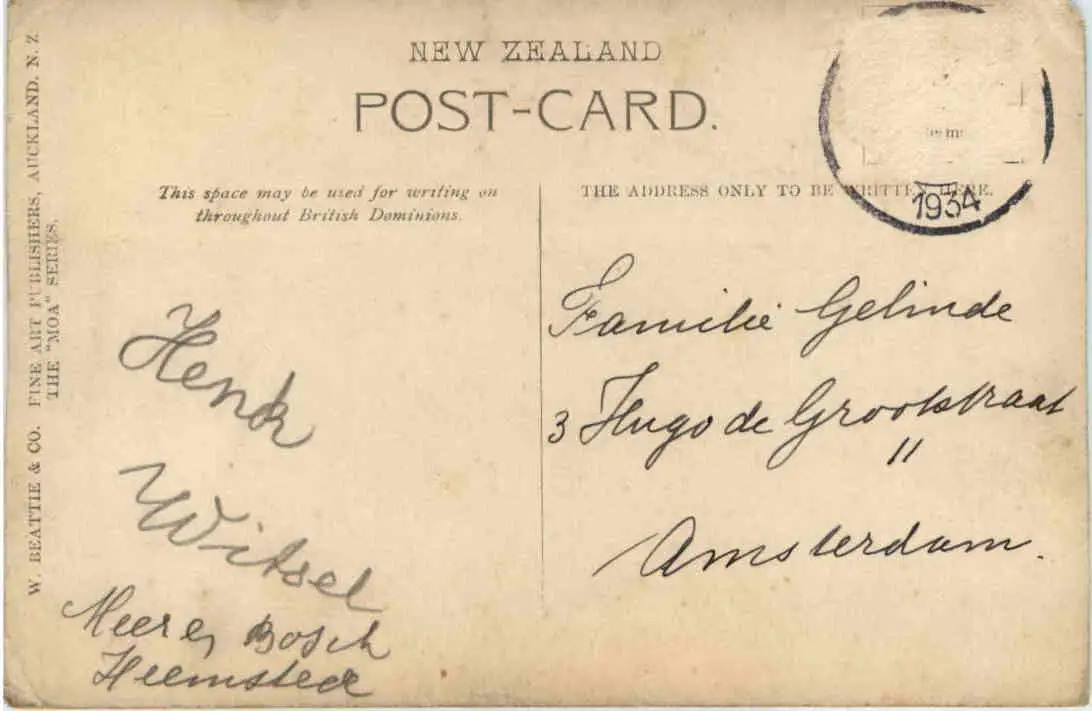 NEW ZEALAND
POST-CARD.
W. BEATTIE & CO. FINE ART PUBLISHERS, AUCKLAND. N. Z
THE "MOA" SERIES.
This space may be used for writing on
throughout British Dominions.
THE ADDRESS ONLY TO BE WRITTEN HERE.
1934
Henk
Witsel
Meer en Bosch
Heemstede
Familie Gelinde
3 Hugo de Grootstraat
"
Amsterdam.